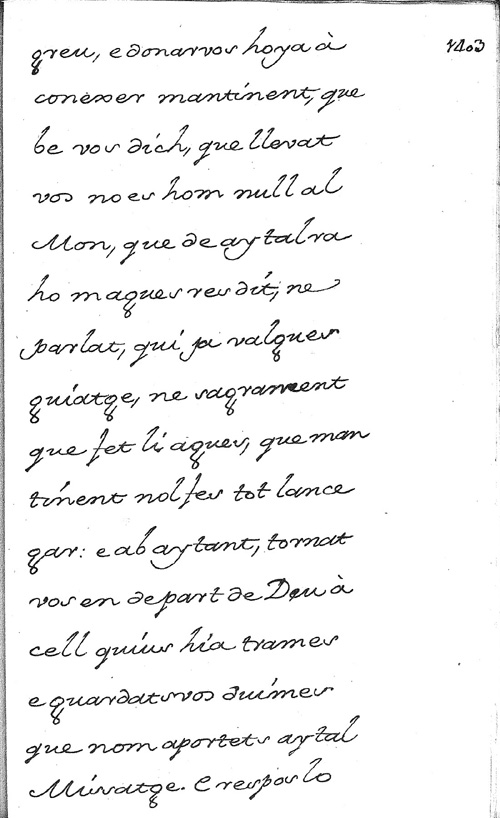 greu, e donarvos hoya à
1403
conexer mantinent, que
be vos dich, que llevat
vos no es hom null al
Mon, que de aytal ra
ho magues res dit, ne
parlat, qui ja valgues
guiatge, ne sagrament
que fet li agues, que man
tinent nol fes tot lance
gar: e ab aytant, tornat
vos en de part de Deu à
cell quius hia trames
e guardats vos duimes
que nom aportets aytal
Missatge. E respos lo